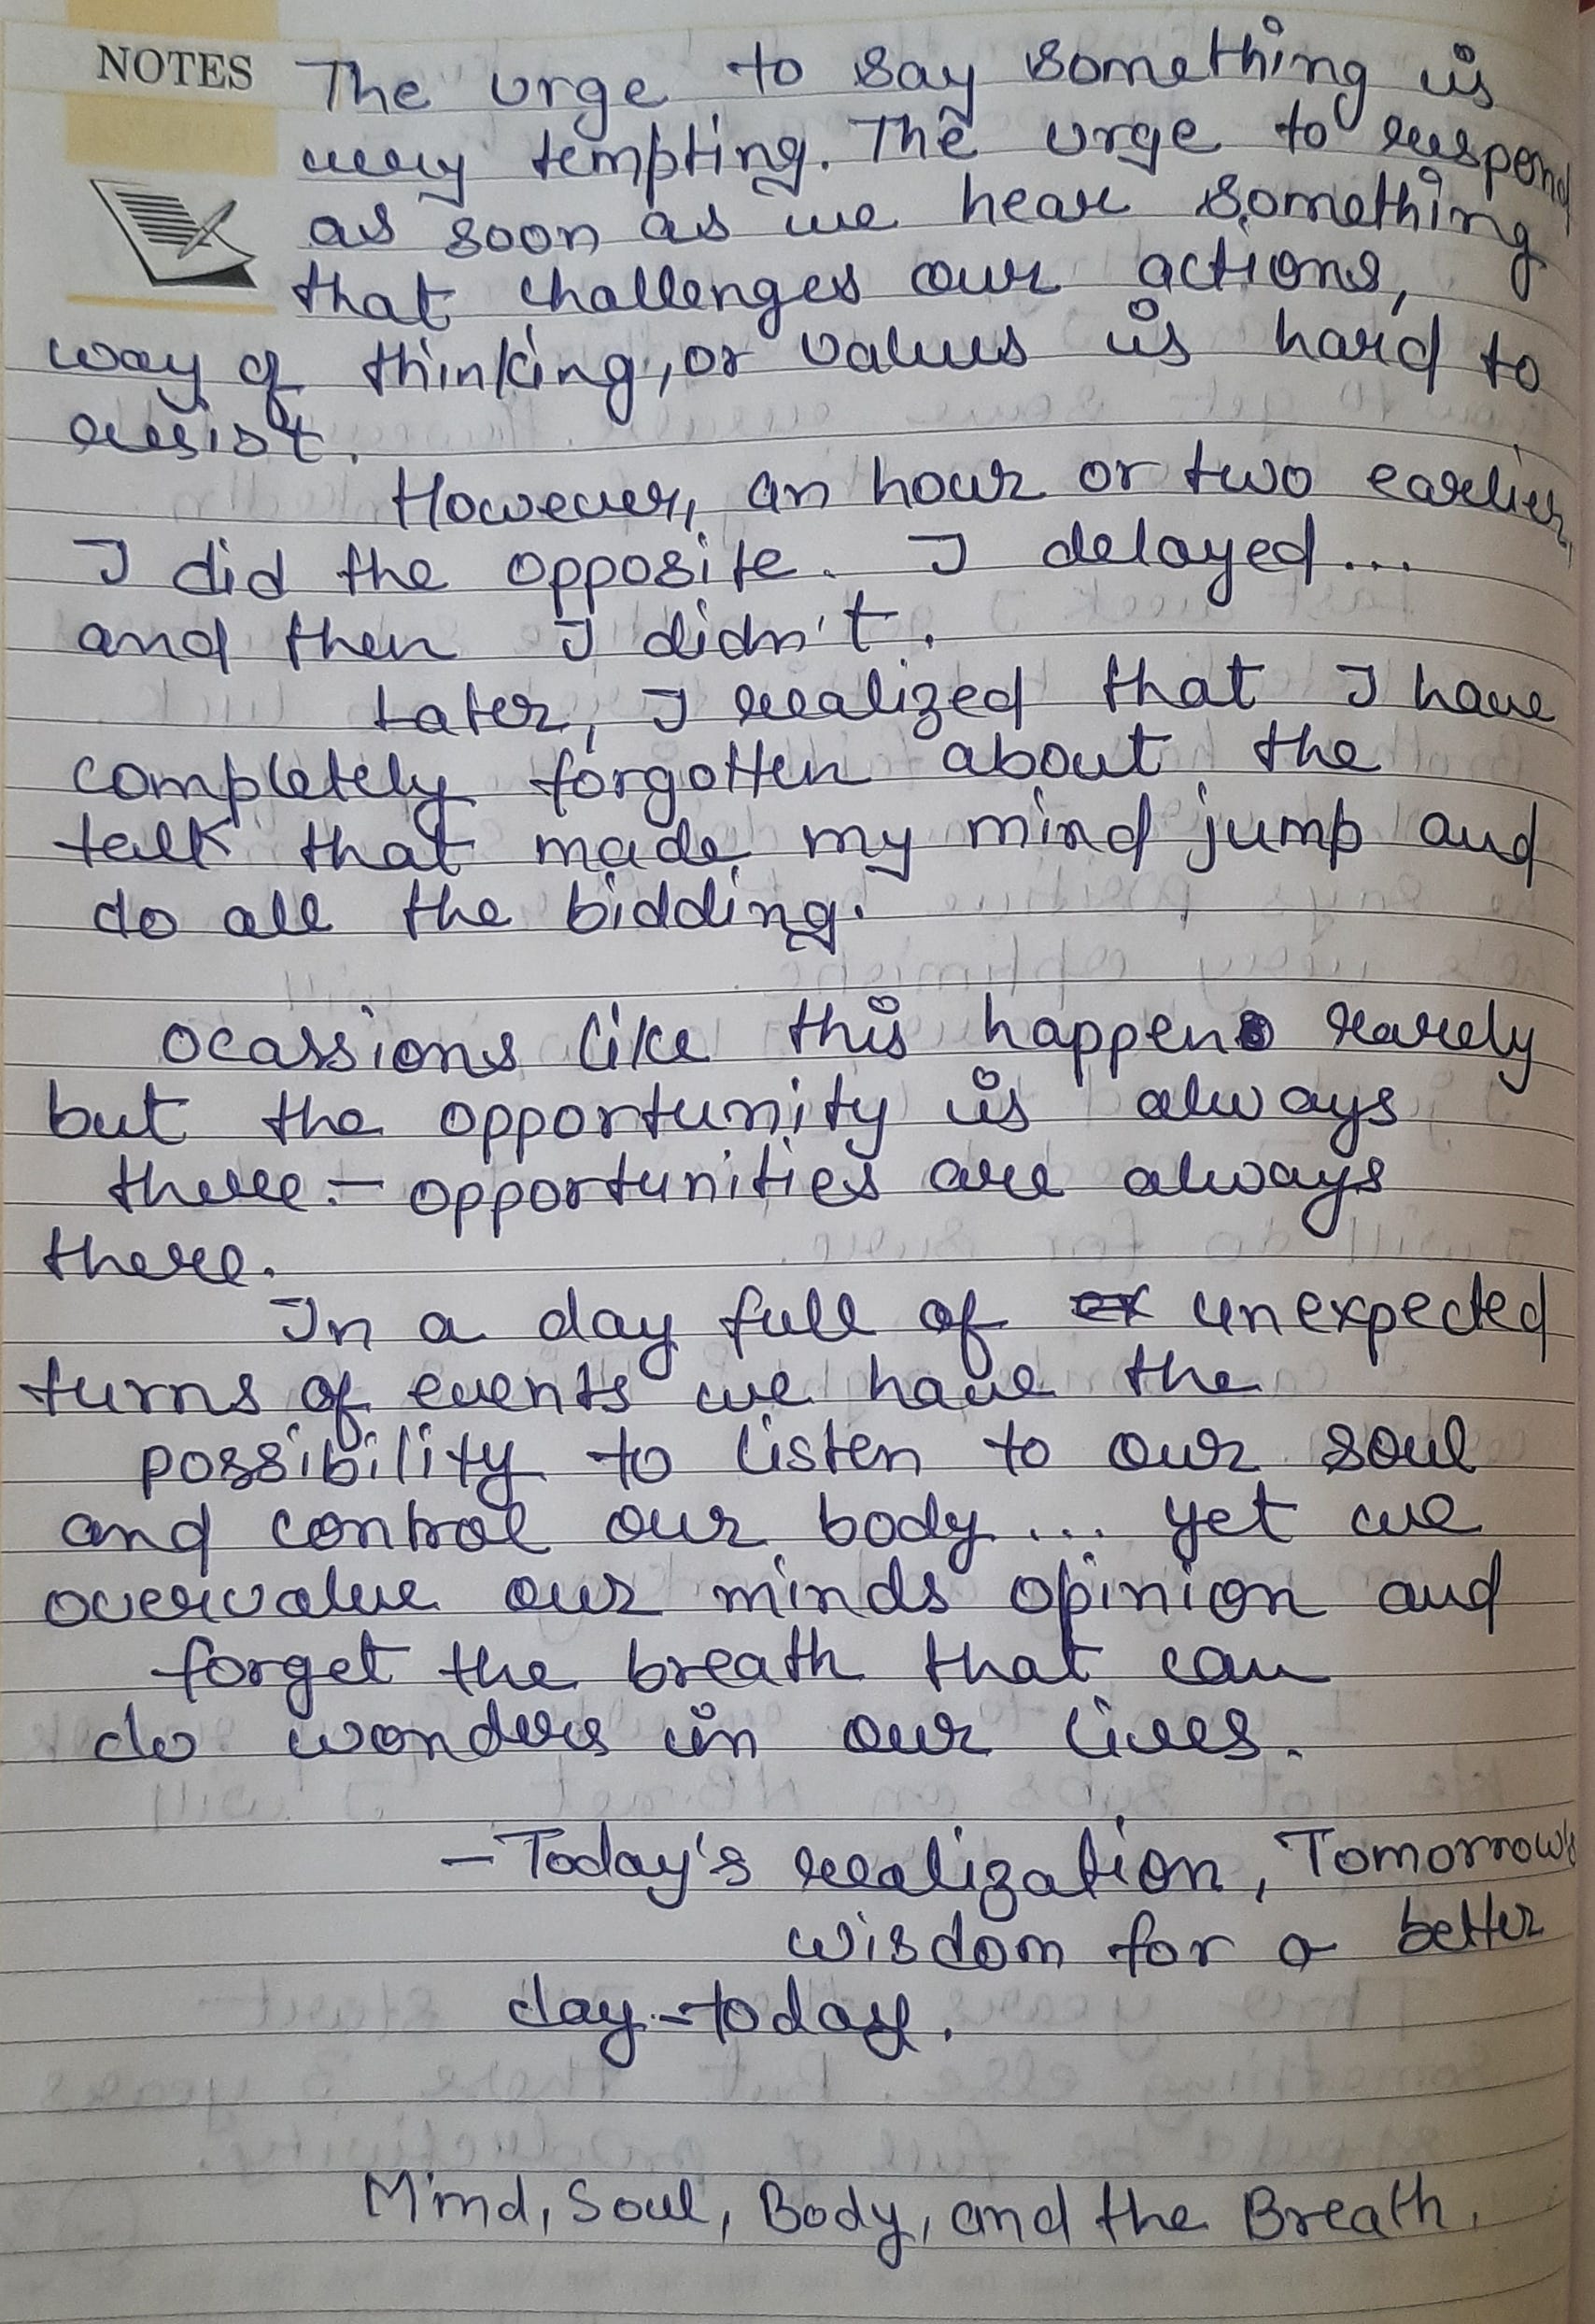 NOTES
The urge to say something is
very tempting. The urge to respond
as soon as we hear something
that challenges our actions,
way of thinking, or values is hard to
resist.
However, an hour or two earlier,
I did the opposite. I delayed...
and then I didn't.
Later, I realized that I have
completely forgotten about the
talk that made my mind jump and
do all the bidding.
ocassions like this happens rarely
but the opportunity is always
there. – opportunities are always
there.
In a day full of unexpected
turns of events we have the
possibility to listen to our soul
and control our body... yet we
overvalue our minds opinion and
forget the breath that can
do wonders in our lives.
– Today's realization, Tomorrow's
wisdom for a better
day-today.
Mind, Soul, Body, and the Breath.